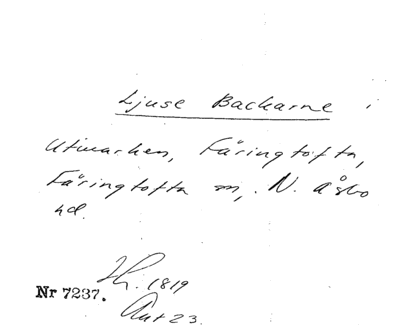 Ljuse Backarne i
Utmarken, Färingtofta,
Färingtofta sn, N. Åsbo
hd.
Nr 7237.
1819
Akt 23.